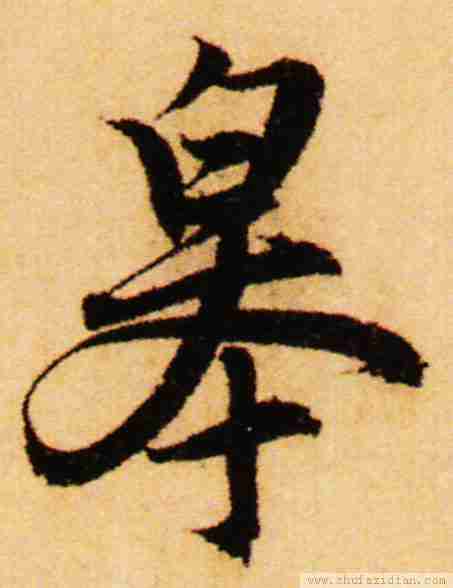 皋
www.shufazidian.com